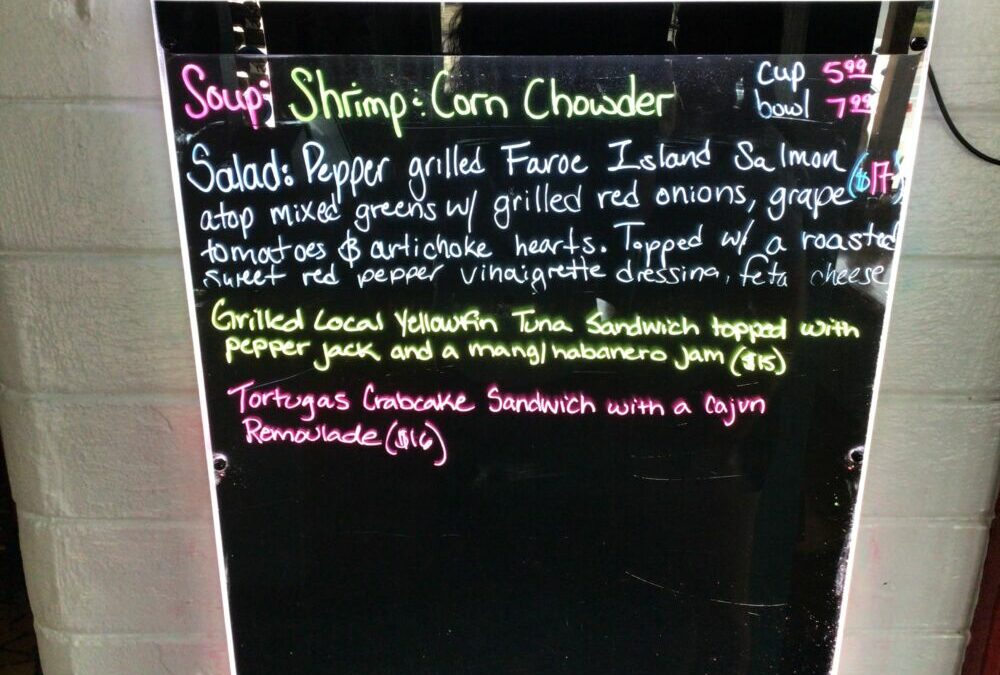 Soup: Shrimp & Corn Chowder cup 5.99
bowl 7.99
Salad: Pepper grilled Faroe Island Salmon ($17)
atop mixed greens w/ grilled red onions, grape
tomatoes & artichoke hearts. Topped w/ a roasted
sweet red pepper vinaigrette dressing, feta cheese
Grilled Local Yellowfin Tuna Sandwich topped with
pepper jack and a mang/habanero jam ($15)
Tortugas Crabcake Sandwich with a Cajun
Remoulade ($16)